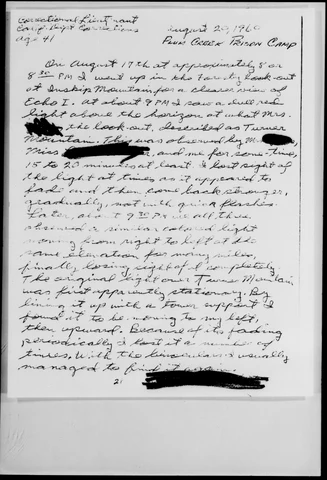 Correctional Lieutenant
Calif Dept Corrections
Age 41
August 20, 1960
Plum Creek Prison Camp
On August 17th at approximately 8 or
8:30 PM I went up in the Forestry look out
at Inskip Mountain for a clearer view of
Echo I. At about 9 PM I saw a dull red
light above the horizon at what Mrs.
the look out, described as Turner
Mountain. This was observed by M
Miss and me for some time,
15 to 20 minutes at least. I lost sight of
the light at times as it appeared to
fade and then come back stronger,
gradually, not with quick flashes.
Later, about 9:30 PM we all three
observed a similar colored light
moving from right to left at the
same elevation for many miles,
finally losing sight of it completely.
The original light over Turner Mountain
was first apparently stationary. By
lining it up with a tower support I
found it to be moving to my left,
then upward. Because of its fading
periodically I lost it a number of
times. With the binoculars I usually
managed to find it again.
2